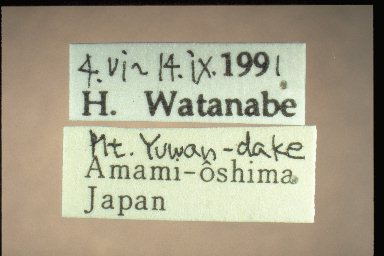 4.vi~14.ix.1991
H. Watanabe
Mt. Yuwan-dake
Amami-ôshima
Japan